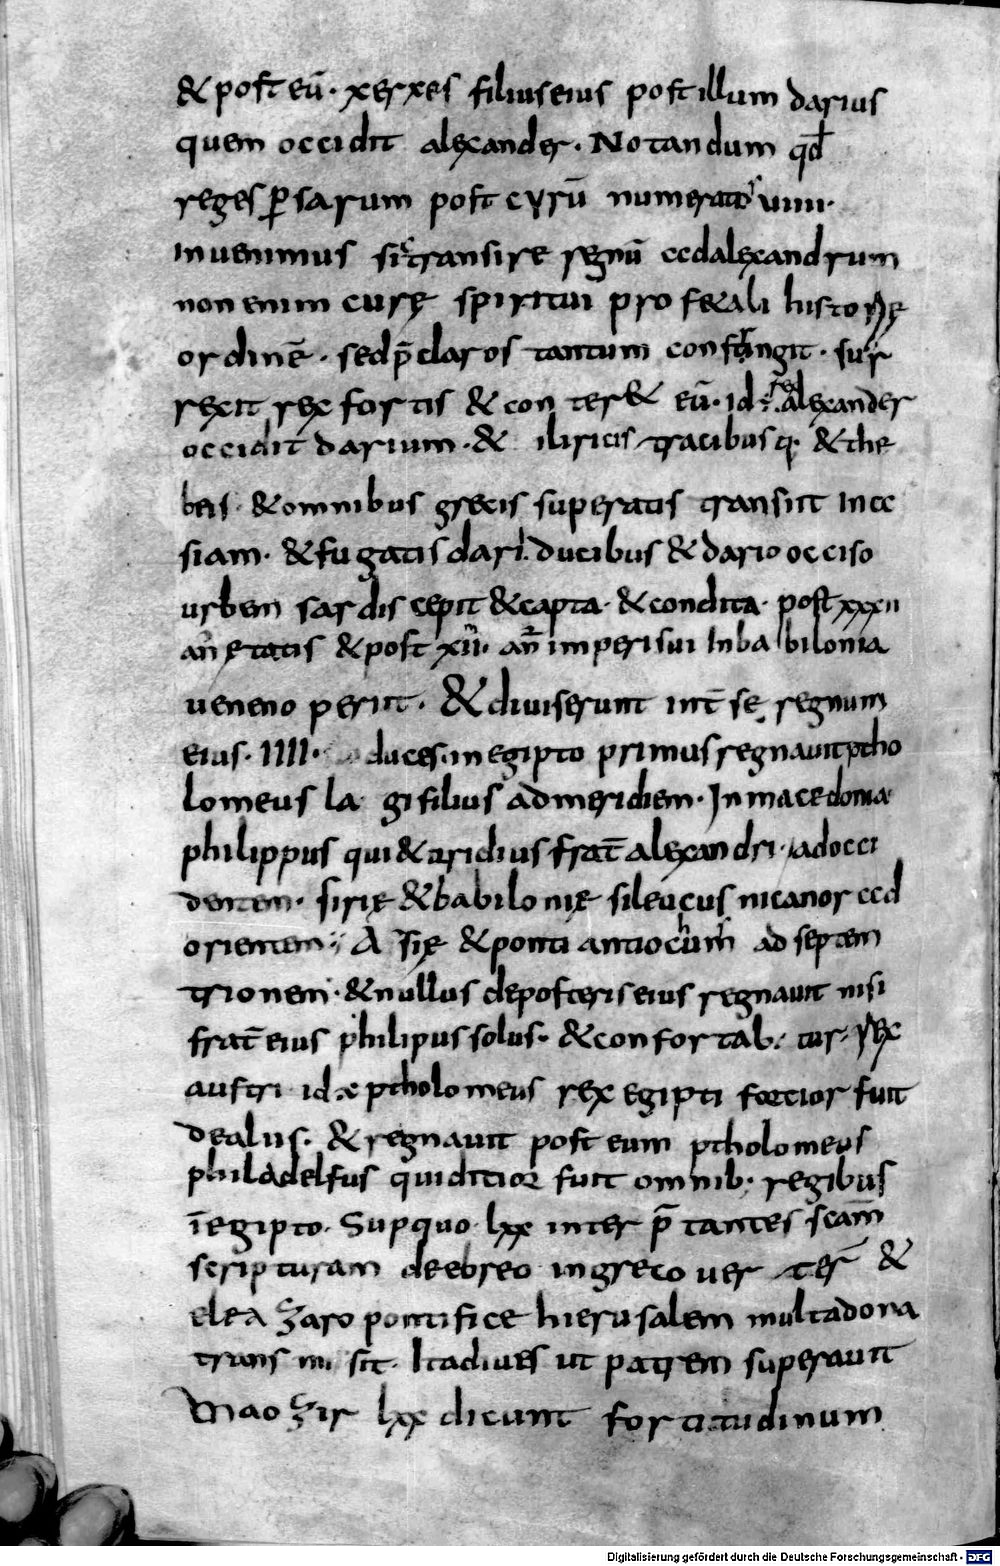 & post eū· xerxes filius eius post illum darius
quem occidit alexander· Notandum qđ
reges ꝑsarum post cyrū numerat uiiii·
inuenimus sic transire regnū ad alexandrum
non enim curę spiritui profetali historię
ordinē· sed p̄claros tantum constringit· sur
rexit rex fortis & conteret eū· id· rex alexander
occidit darium· & iliricis tracibusq· & the
beis· & omnibus grecis superatis transiit in a
siam· & fugatis dari ducibus & dario occiso
urbem sardis cepit & capta· & condita· post xxxii
an̄ ętatis & post xii· an̄ imperi sui in babilonia
ueneno periit· & diuiserunt int̄ se regnum
eius· IIII· duces· in egipto primus regnauit ptho
lomeus lagi filius ad meridiem· In macedonia
philippus qui & aridius frat̄ alexandri· ad occi
dentem· sirię & babilonię sileucus nicanor ad
orientem· Asię & ponti antiochum ad septem
trionem· & nullus de posteris eius regnauit nisi
frat̄ eius philipus solus· & confortab· tur· rex
austri id· ptholomeus rex egipti fortior fuit
de alus· & regnauit post eum ptholomeus
philadelfus qui ditior fuit omnib· regibus
ī egipto· Sup quo lxx inter p̄tantes scam̄
scripturam de ebreo in greco uer ter̄ &
eleazaro pontifice hierusalem multa dona
trans mi sit· Ita diues ut patrem superauit
maozir lxx dicunt fortitudinum